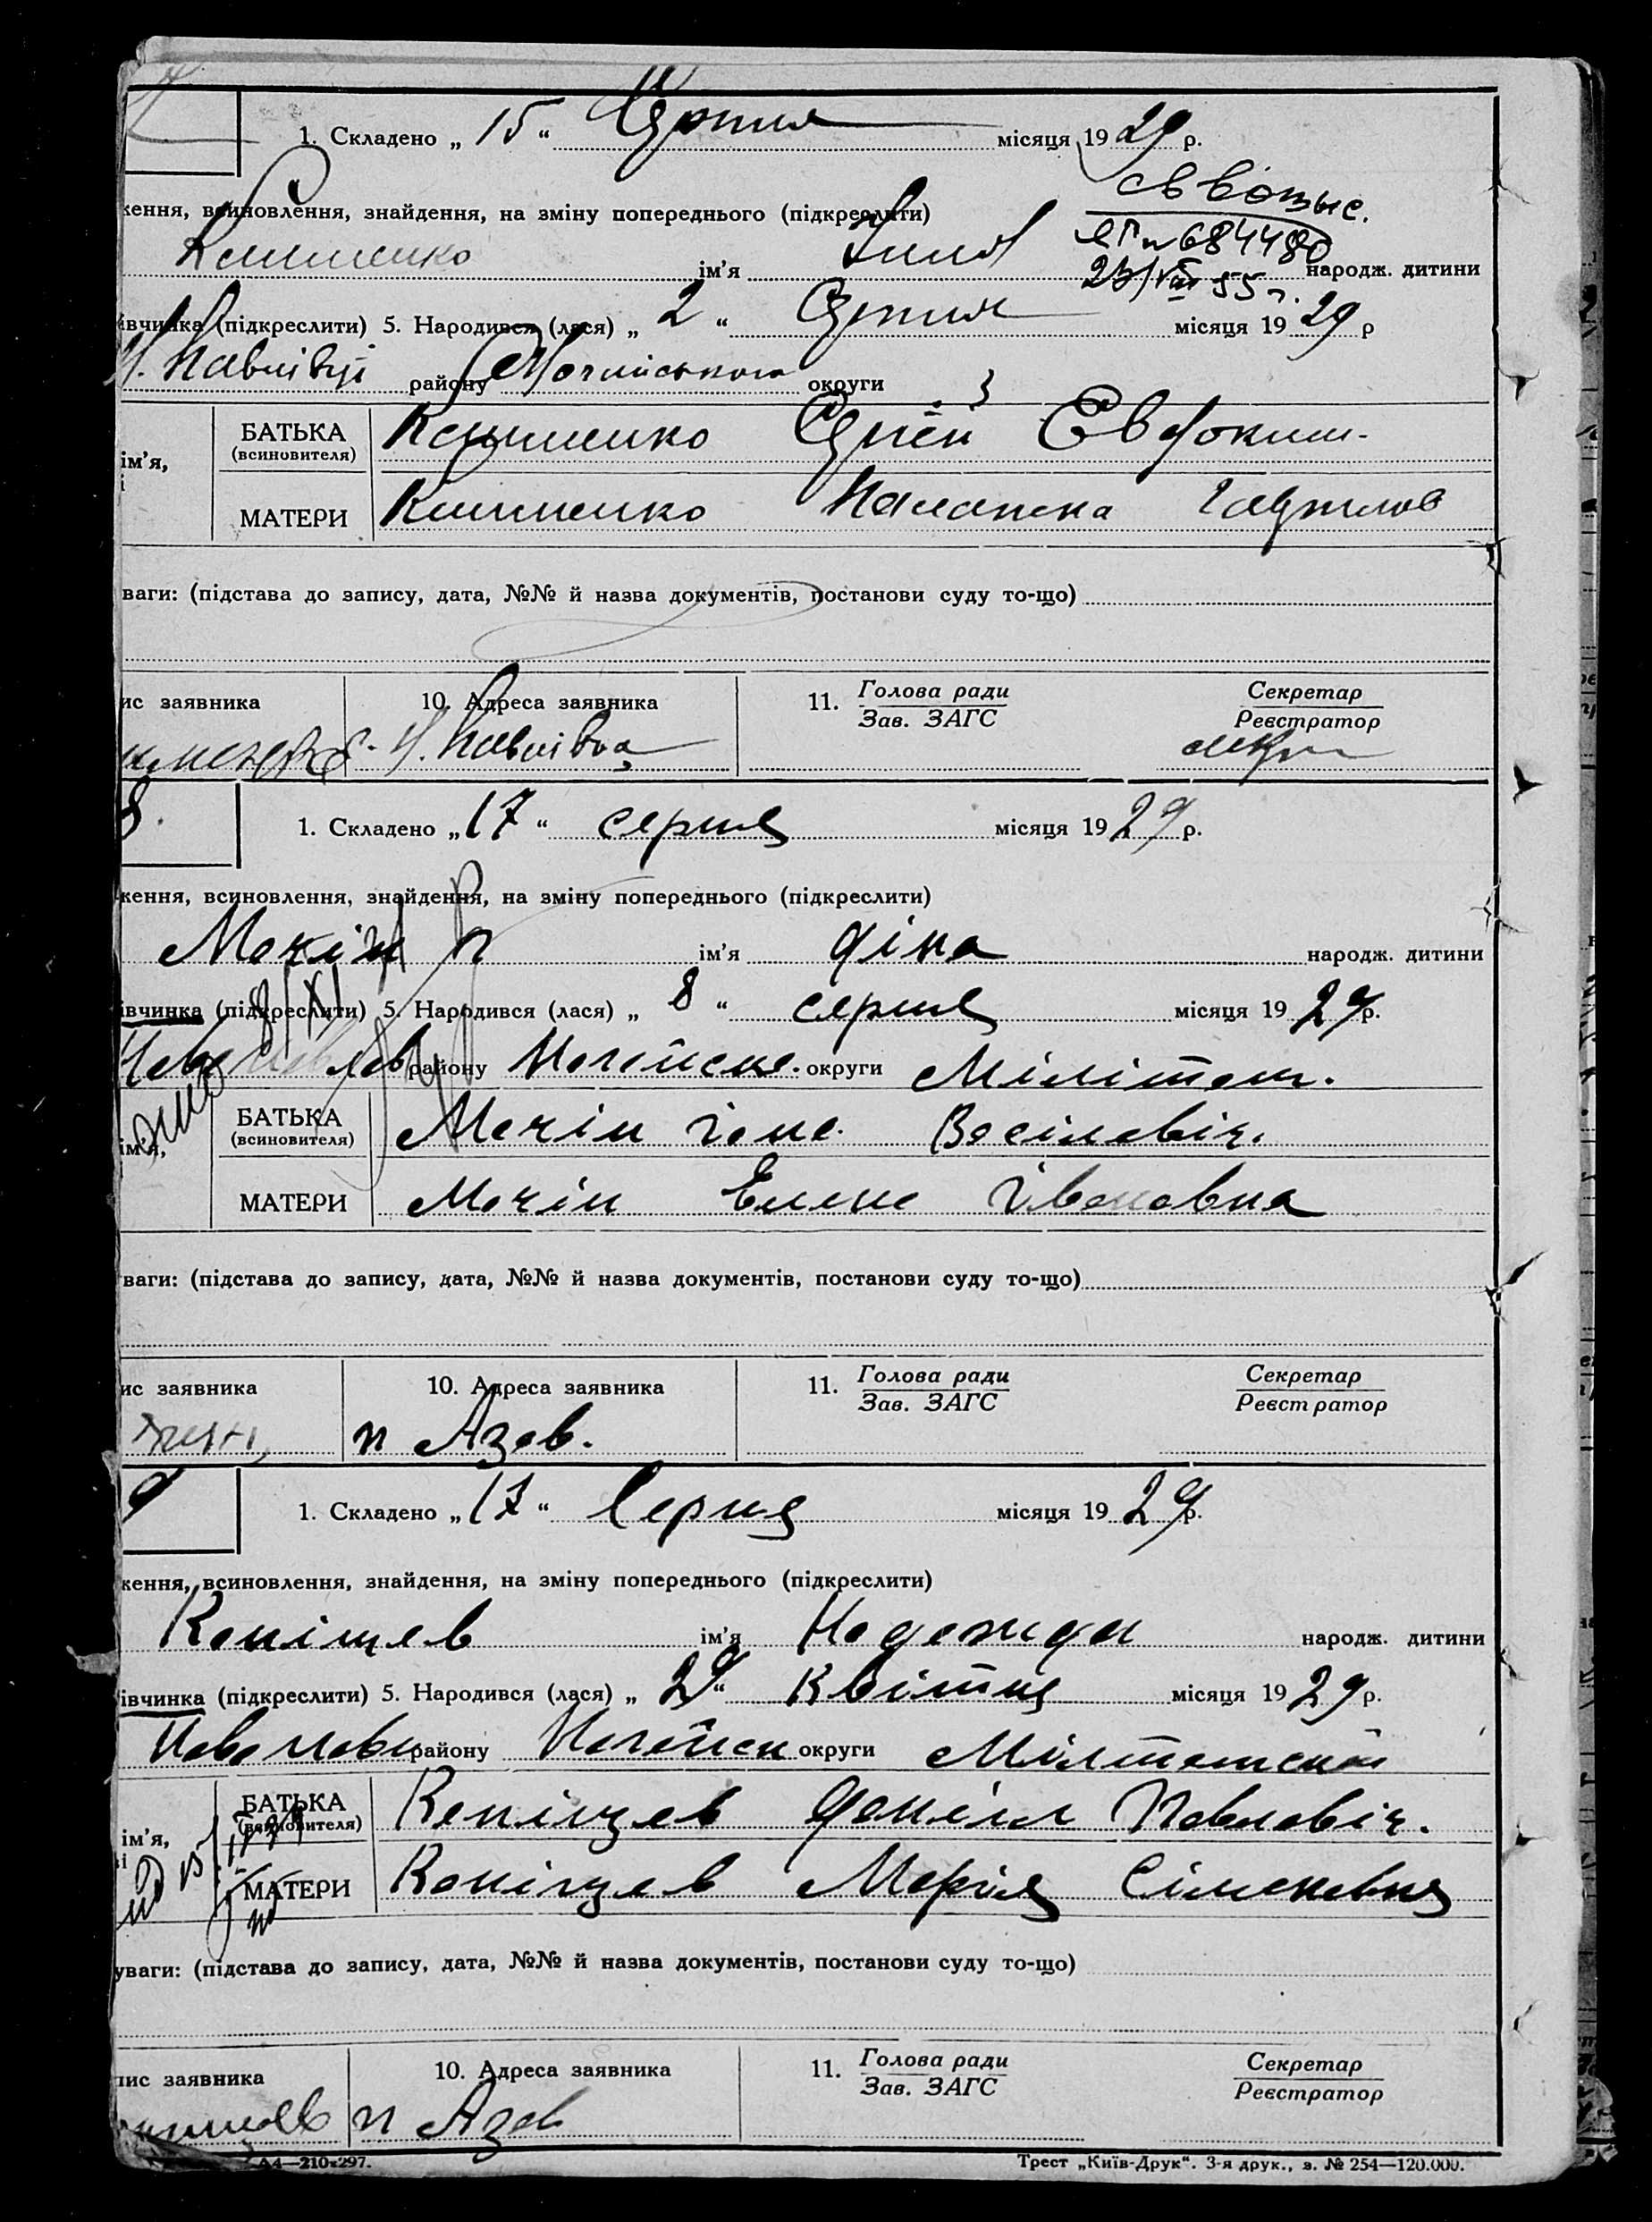 1. Складено „ 15 “ Серпня місяця 1929 р.
ження, всиновлення, знайдення, на зміну попереднього (підкреслити)
св. выс.
Клименко ім’я народж. дитини
684480
23/VIII 55 г.
івчинка (підкреслити) 5. Народився (лася) „ 2 “ Серпня місяця 1929 р
Н. Павлівці району Ногайського округи
ім’я, БАТЬКА (всиновителя) Клименко Сергій Евдоким-
МАТЕРИ Клименко Палажка Гаврилов
ваги: (підстава до запису, дата, №№ й назва документів, постанови суду то-що)
ис заявника 10. Адреса заявника 11. Голова ради Секретар
Зав. ЗАГС Реєстратор
Н. Павлівка
8. 1. Складено „ 17 “ серпня місяця 1929 р.
ження, всиновлення, знайдення, на зміну попереднього (підкреслити)
Мечін ім’я Діна народж. дитини
івчинка (підкреслити) 5. Народився (лася) „ 8 “ серпня місяця 1929 р.
району Ногайске. округи Мілітоп.
ім’я, БАТЬКА (всиновителя) Мечін Васілевіч.
МАТЕРИ Мечін Елене Івановна
ваги: (підстава до запису, дата, №№ й назва документів, постанови суду то-що)
ис заявника 10. Адреса заявника 11. Голова ради Секретар
Зав. ЗАГС Реєстратор
п Азов.
9 1. Складено „ 17 “ Серпня місяця 1929 р.
ження, всиновлення, знайдення, на зміну попереднього (підкреслити)
Копіщев ім’я Надежда народж. дитини
івчинка (підкреслити) 5. Народився (лася) „ 29 “ Квітня місяця 1929 р.
району Ногайск округи Мілтопскій
ім’я, БАТЬКА (всиновителя) Копіщев Даніїл Павловіч.
МАТЕРИ Копіщев Марія Сіменовня
уваги: (підстава до запису, дата, №№ й назва документів, постанови суду то-що)
пис заявника 10. Адреса заявника 11. Голова ради Секретар
Зав. ЗАГС Реєстратор
п Азов
А4—210x297. Трест „Київ-Друк“. 3-я друк., з. № 254—120.000.